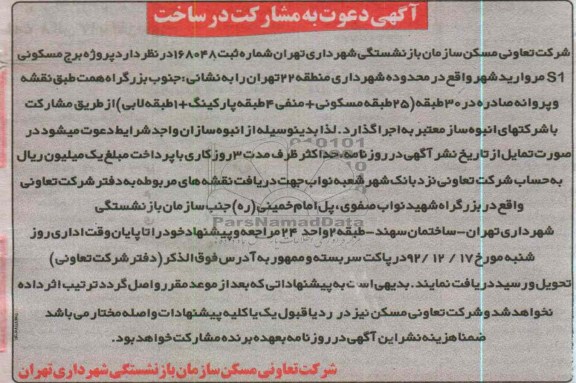 آگهی دعوت به مشارکت در ساخت
شرکت تعاونی مسکن سازمان بازنشستگی شهرداری تهران شماره ثبت ۱۶۸۰۴۸ در نظر دارد پروژه برج مسکونی
S1 مروارید شهر واقع در محدوده شهرداری منطقه ۲۲ تهران را به نشانی: جنوب بزرگراه همت طبق نقشه
و پروانه صادره در ۳۰ طبقه (۲۵ طبقه مسکونی + منفی ۴ طبقه پارکینگ + ۱ طبقه لابی) از طریق مشارکت
با شرکتهای انبوه ساز معتبر به اجرا گذارد. لذا بدینوسیله از انبوه سازان واجد شرایط دعوت میشود در
صورت تمایل از تاریخ نشر آگهی در روزنامه حداکثر ظرف مدت ۳ روز کاری با پرداخت مبلغ یک میلیون ریال
به حساب شرکت تعاونی نزد بانک شهر شعبه نواب جهت دریافت نقشه های مربوطه به دفتر شرکت تعاونی
واقع در بزرگراه شهید نواب صفوی، پل امام خمینی (ره) جنب سازمان بازنشستگی
ParsNamadData
شهرداری تهران-ساختمان سهند-طبقه ۲ واحد ۲۴ مراجعه و پیشنهاد خود را تا پایان وقت اداری روز
شنبه مورخ ۱۷ / ۱۲ / ۹۲ در پاکت سربسته و ممهور به آدرس فوق الذکر (دفتر شرکت تعاونی)
تحویل و رسید دریافت نمایند. بدیهی است به پیشنهاداتی که بعد از موعد مقرر واصل گردد ترتیب اثر داده
نخواهد شد و شرکت تعاونی مسکن نیز در رد یا قبول یک یا کلیه پیشنهادات واصله مختار می باشد
ضمنا هزینه نشر این آگهی در روزنامه بعهده برنده مشارکت خواهد بود.
شرکت تعاونی مسکن سازمان بازنشستگی شهرداری تهران